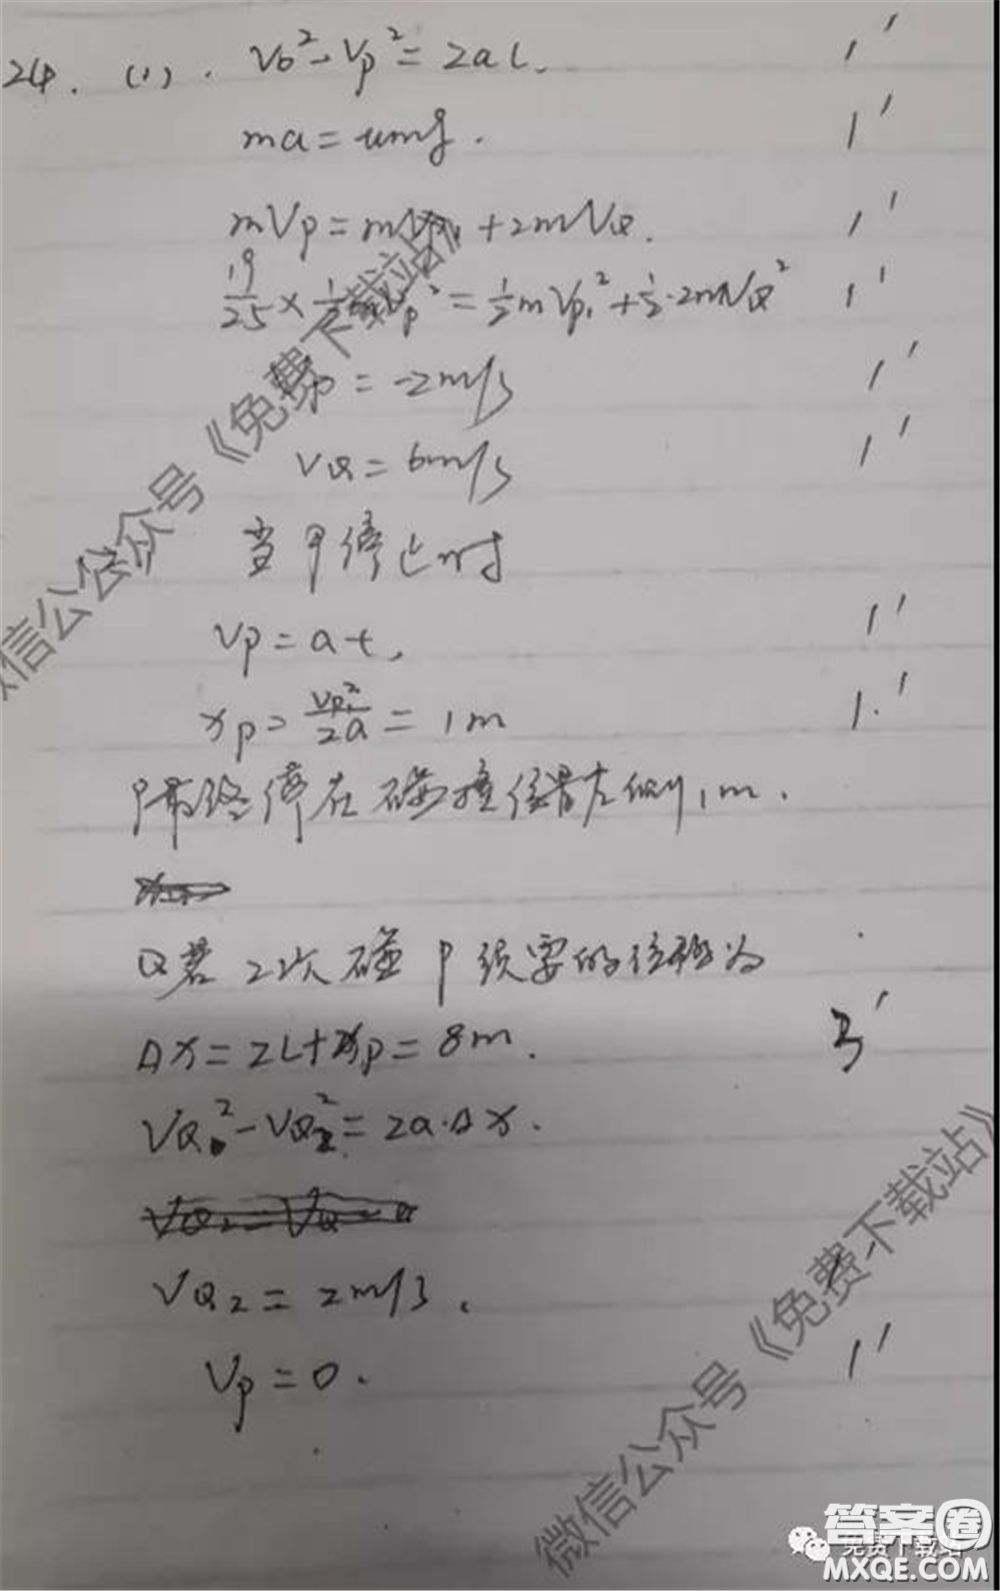 24. (1). V₀²-Vp²=2aL. 1'
ma=umg. 1'
mVp=mVp₁+2mVQ. 1'
19/25×1/2mVp²=1/2mVp₁²+1/2·2mVQ² 1'
=-2m/s 1'
VQ=6m/s 1'
当P停止时
Vp=at, 1'
xp=Vp₁²/2a=1m 1.'
P最终停在碰撞位置左侧1m.
Q若2次碰P须要的位移为
Δx=2L+xp=8m. 3'
VQ²-VQ₂²=2a·Δx.
VQ₂=2m/s.
Vp=0. 1'
微信公众号《免费下载站》
微信公众号《免费下载站》
答案圈
免费下载站
MXQE.COM